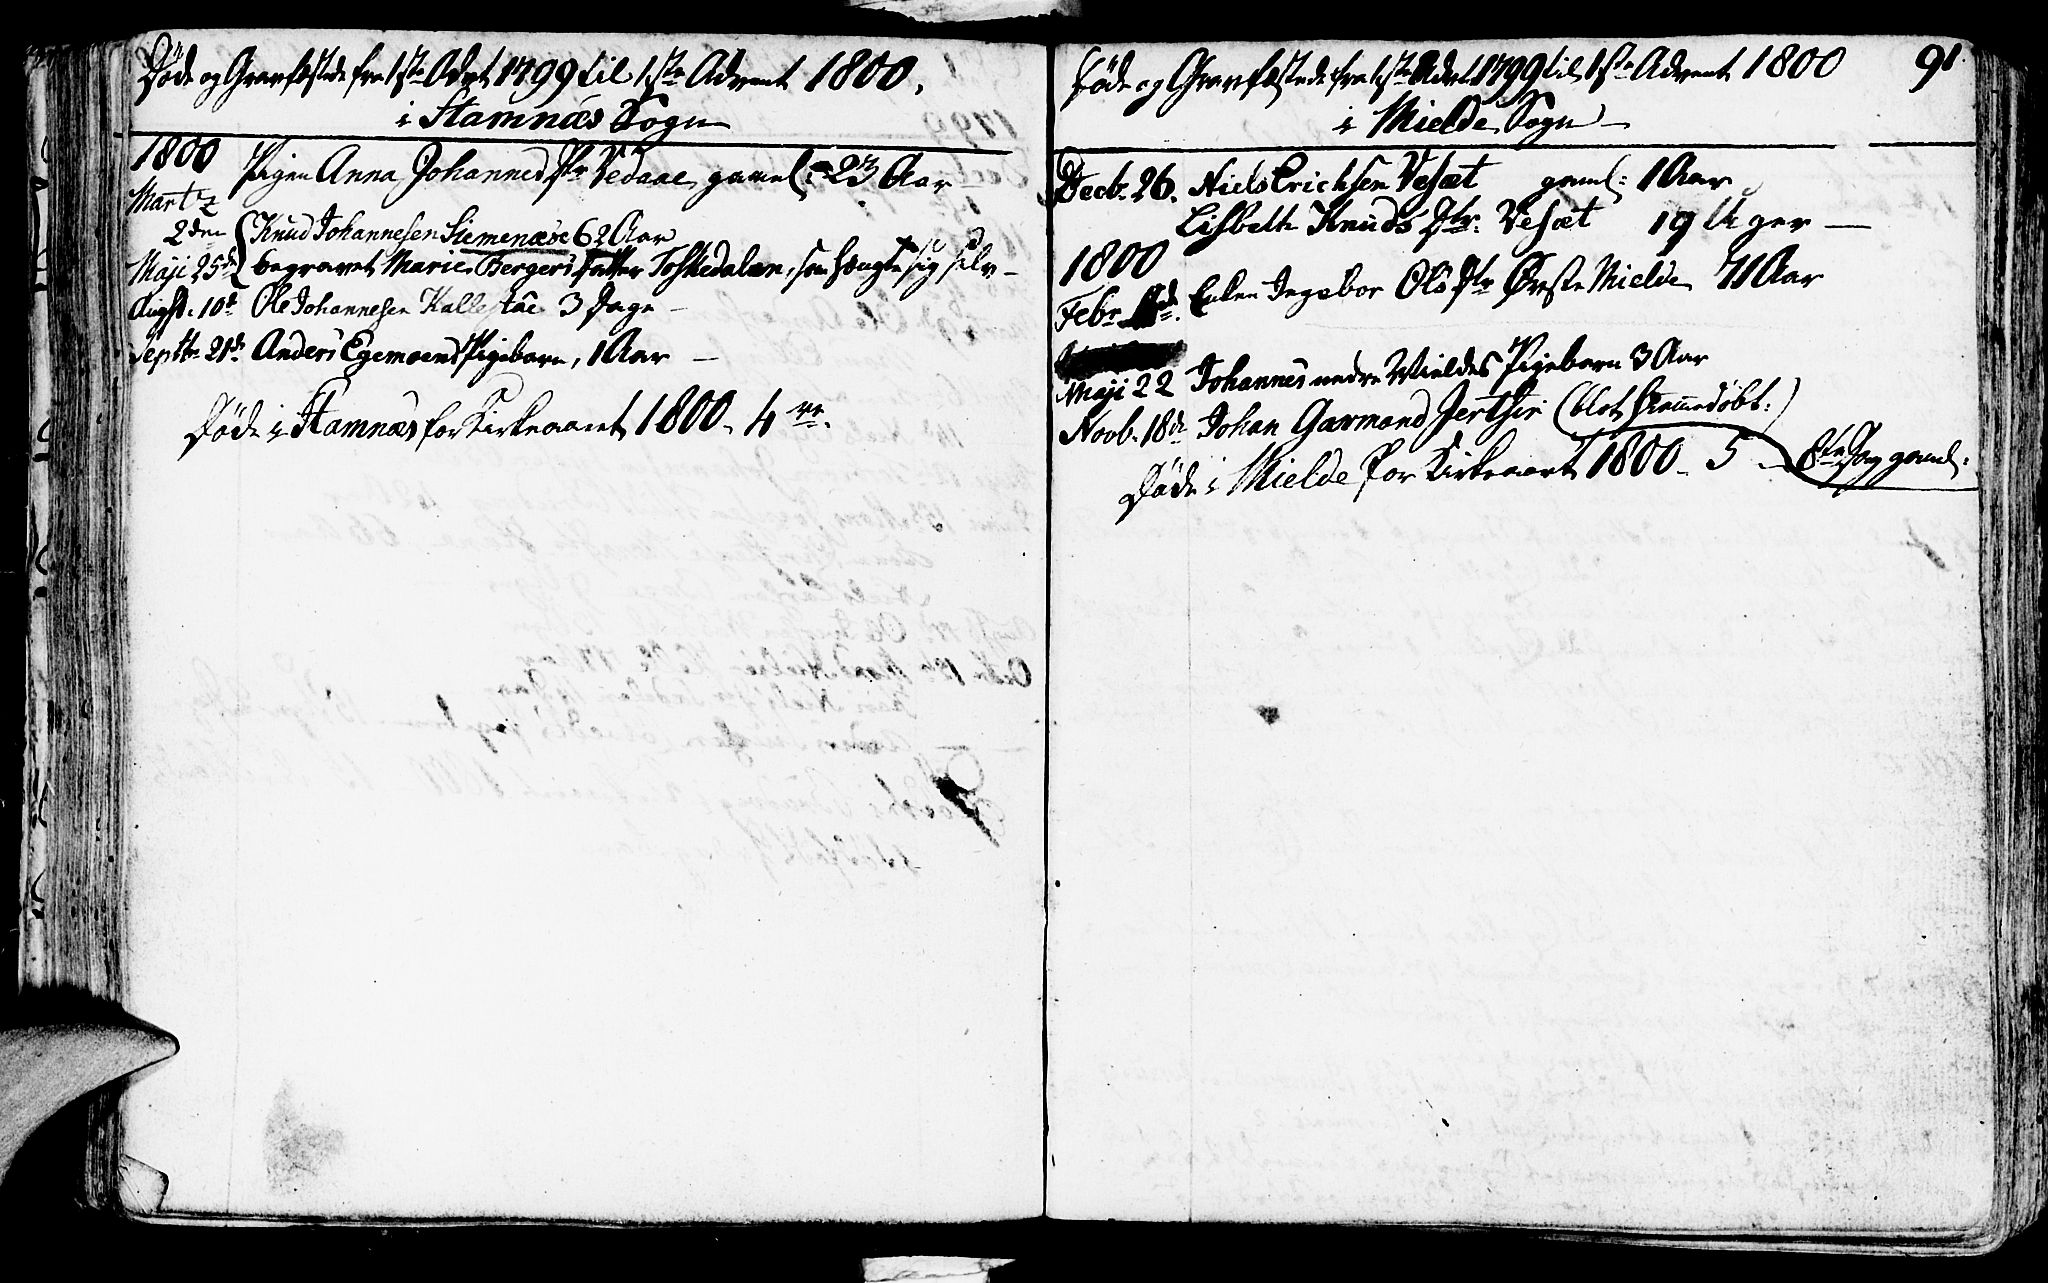 Døde og Gravfæstede fra 1ste Advt 1799 til 1ste Advent 1800.
i Stamnæs Sogn
1800
Pigen Anna Johannesd Vedaae gamel 23 Aar
Mart
2den Knud Johannesen Stemenæse 62 Aar
Maji 25de begravet Marie Bergers fatter Toskedalen, som hængte sig selv
Augst. 10de Ole Johannesen Kallestae 3 Dage
Septbr 21de Anders Egemoens Pigebarn, 1 Aar
Døde i Stamnæs for Kirkeaaret 1800. 4re.
91.
Døde og Gravfæstede fra 1ste Advt 1799 til 1ste Advent 1800
i Mielde Sogn
Decbr 26. Niels Erichsen Vesæt gaml: 1 Aar
Lisbeth Knuds Dtr: Vesæt 19 Uger
1800
Febr Enken Ingebor Ols Dtr Øvste Mielde 71 Aar
Maji 22 Johannes nedre Mieldes Pigebarn 3 Aar
Novb. 18de Johan Garmand (blot hiemmedøbt:)
Døde i Mielde for Kirkeaaret 1800 5 8te Dag gaml: